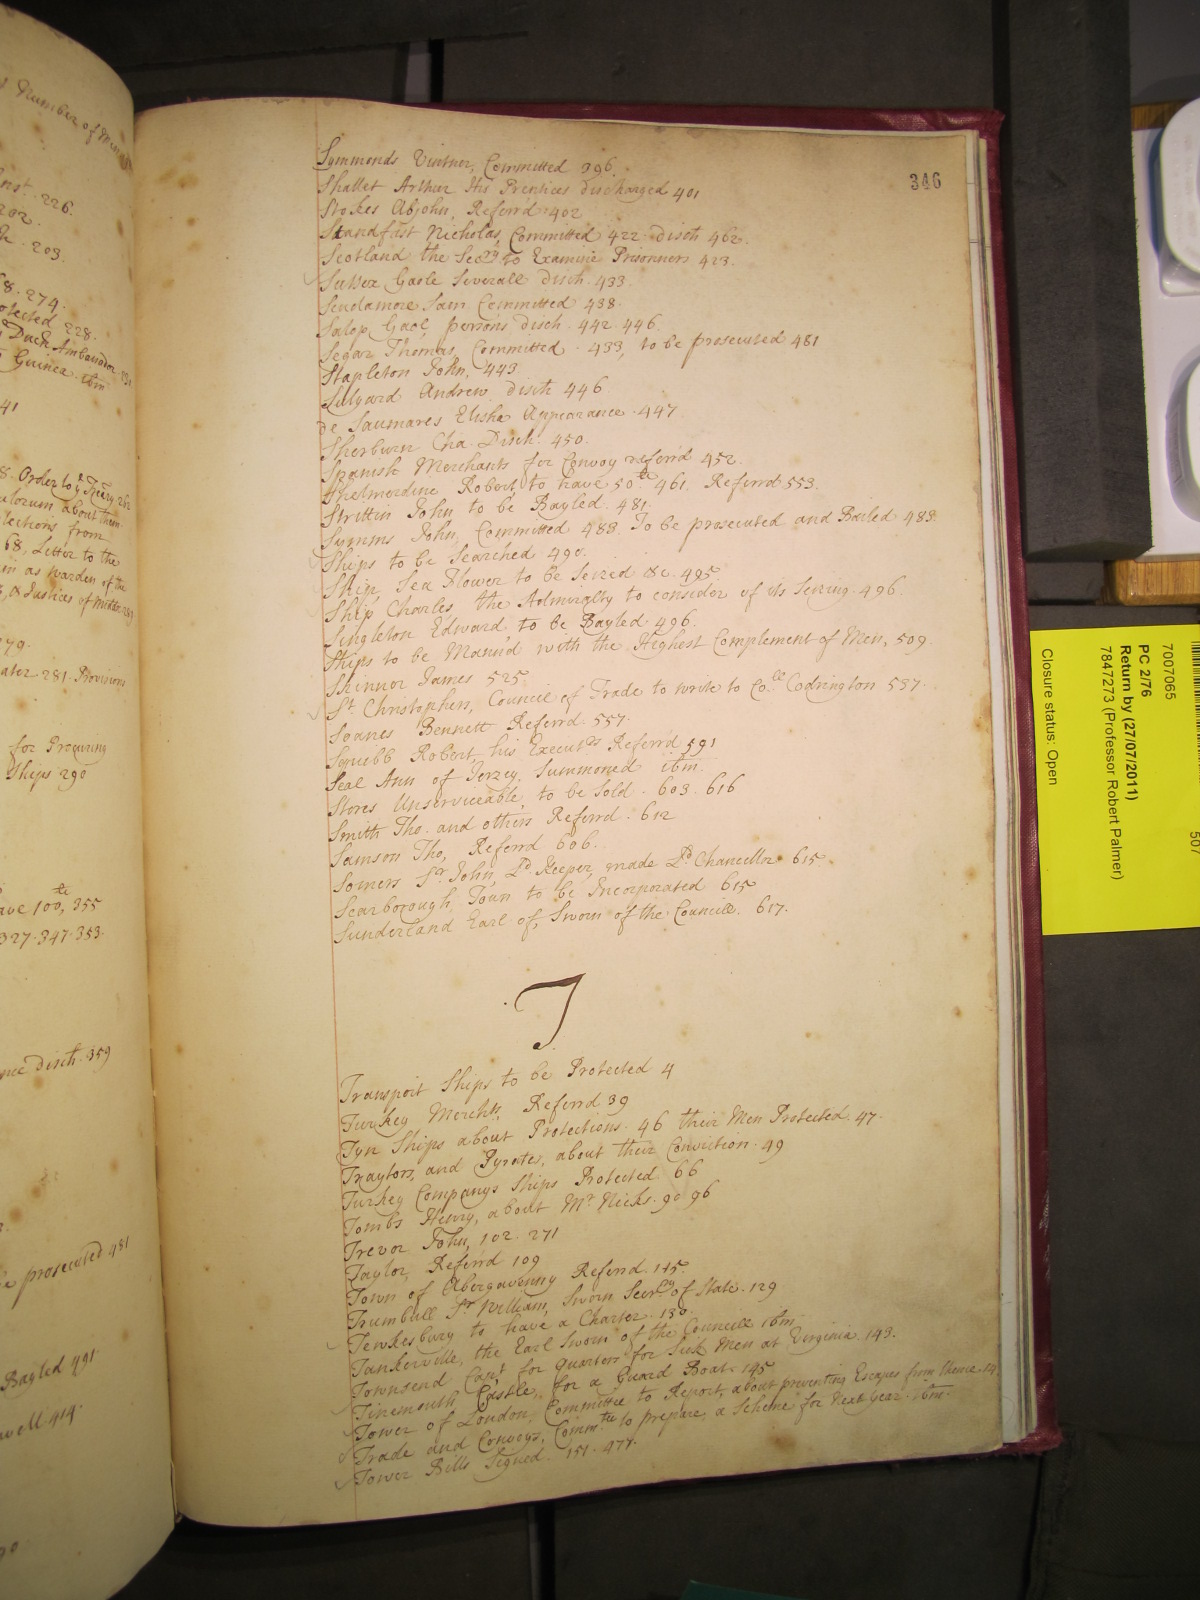 346
Symmonds Vintner, Committed 396.
Shallet Arthur His Prentices discharged 401
Stokes Abjohn, Referrd 402
Standfast Nicholas, Committed 422. disch 462.
Scotland the Secry to Examine Prisonners 423.
Sussex Gaole Severall disch. 433.
Scudamore Sam. Committed 438.
Salop, Gaol, persons disch. 442. 446.
Segar Thomas, Committed. 433, to be prosecuted 481
Stapleton John, 443.
Sulyard Andrew disch 446.
de Saumares Elisha Appearance. 447.
Sherburn Cha. Disch. 450.
Spanish Merchants for Convoy referrd 452.
Shelmerdine Robert, to have 50.te 461. Referrd 553.
Strittin John to be Bayled. 481.
Symms John, Committed 483. To be prosecuted and Bailed 483.
Ships to be Searched 490.
Ship, Sea Flower to be Seized &c. 495
Ship Charles the Admiralty to consider of its Seizing. 496.
Singleton Edward to be Bayled 496.
Ships to be Mann'd with the Highest Complement of Men, 509
Skinner James 525.
St Christophers, Councie of Trade to write to Coll Codrington 537.
Soanes Bennett Referrd. 557.
Squibb Robert, his Execut.rs Referrd 591
Seal Ann of Jerzey. Summoned ibm.
Stores Unserviceable, to be Sold. 603. 616
Smith Tho. and others Referrd. 612
Samson Tho, Referrd 606.
Somers Sr. John, Ld. Keeper, made Ld. Chancellor 615.
Scarborough, Town to be Incorporated 615
Sunderland Earl of, Sworn of the Councill. 617.
T
Transport Ships to be Protected 4
Turkey Merchts. Referrd 39
Tyn Ships about Protections. 46 their Men Protected. 47.
Traytors, and Pyrates, about their Conviction. 49
Turkey Companys Ships Protected. 66
Tombs Henry, about Mr. Nicks. 90 96
Trevor John, 102. 271
Taylor, Referrd 109
Town of Abergavenny Referrd. 115.
Trumbull Sr. William, Sworn Secry of State. 129
Tewkesbury to have a Charter. 130.
Tankerville, the Earl Sworn of the Councill ibm
Townsend Capt. for Quarters for Sick Men at Virginia. 143.
Tinemouth Castle, for a Guard Boat. 145
Tower of London, Committee to Report, about preventing Escapes from thence. 14
Trade and Convoys, Commtte to prepare, a Scheme for Next Year. ibm.
Tower Bills Signed. 151. 477.
Number of Men
226.
202.
203.
8. 274.
228.
Dutch Ambassador
Guinea. ibm
41
8. Order to ye
about them
lections from
68, Letter to the
in as Warden of the
& Justices of
79.
281. Provisions
for Procuring
Ships 290
ave 100,te 355
327. 347. 353.
disch. 359
e prosecuted 481
Bayled 491
414.
7007065
PC 2/76
Return by (27/07/2011)
7847273 (Professor Robert Palmer)
Closure status: Open
507